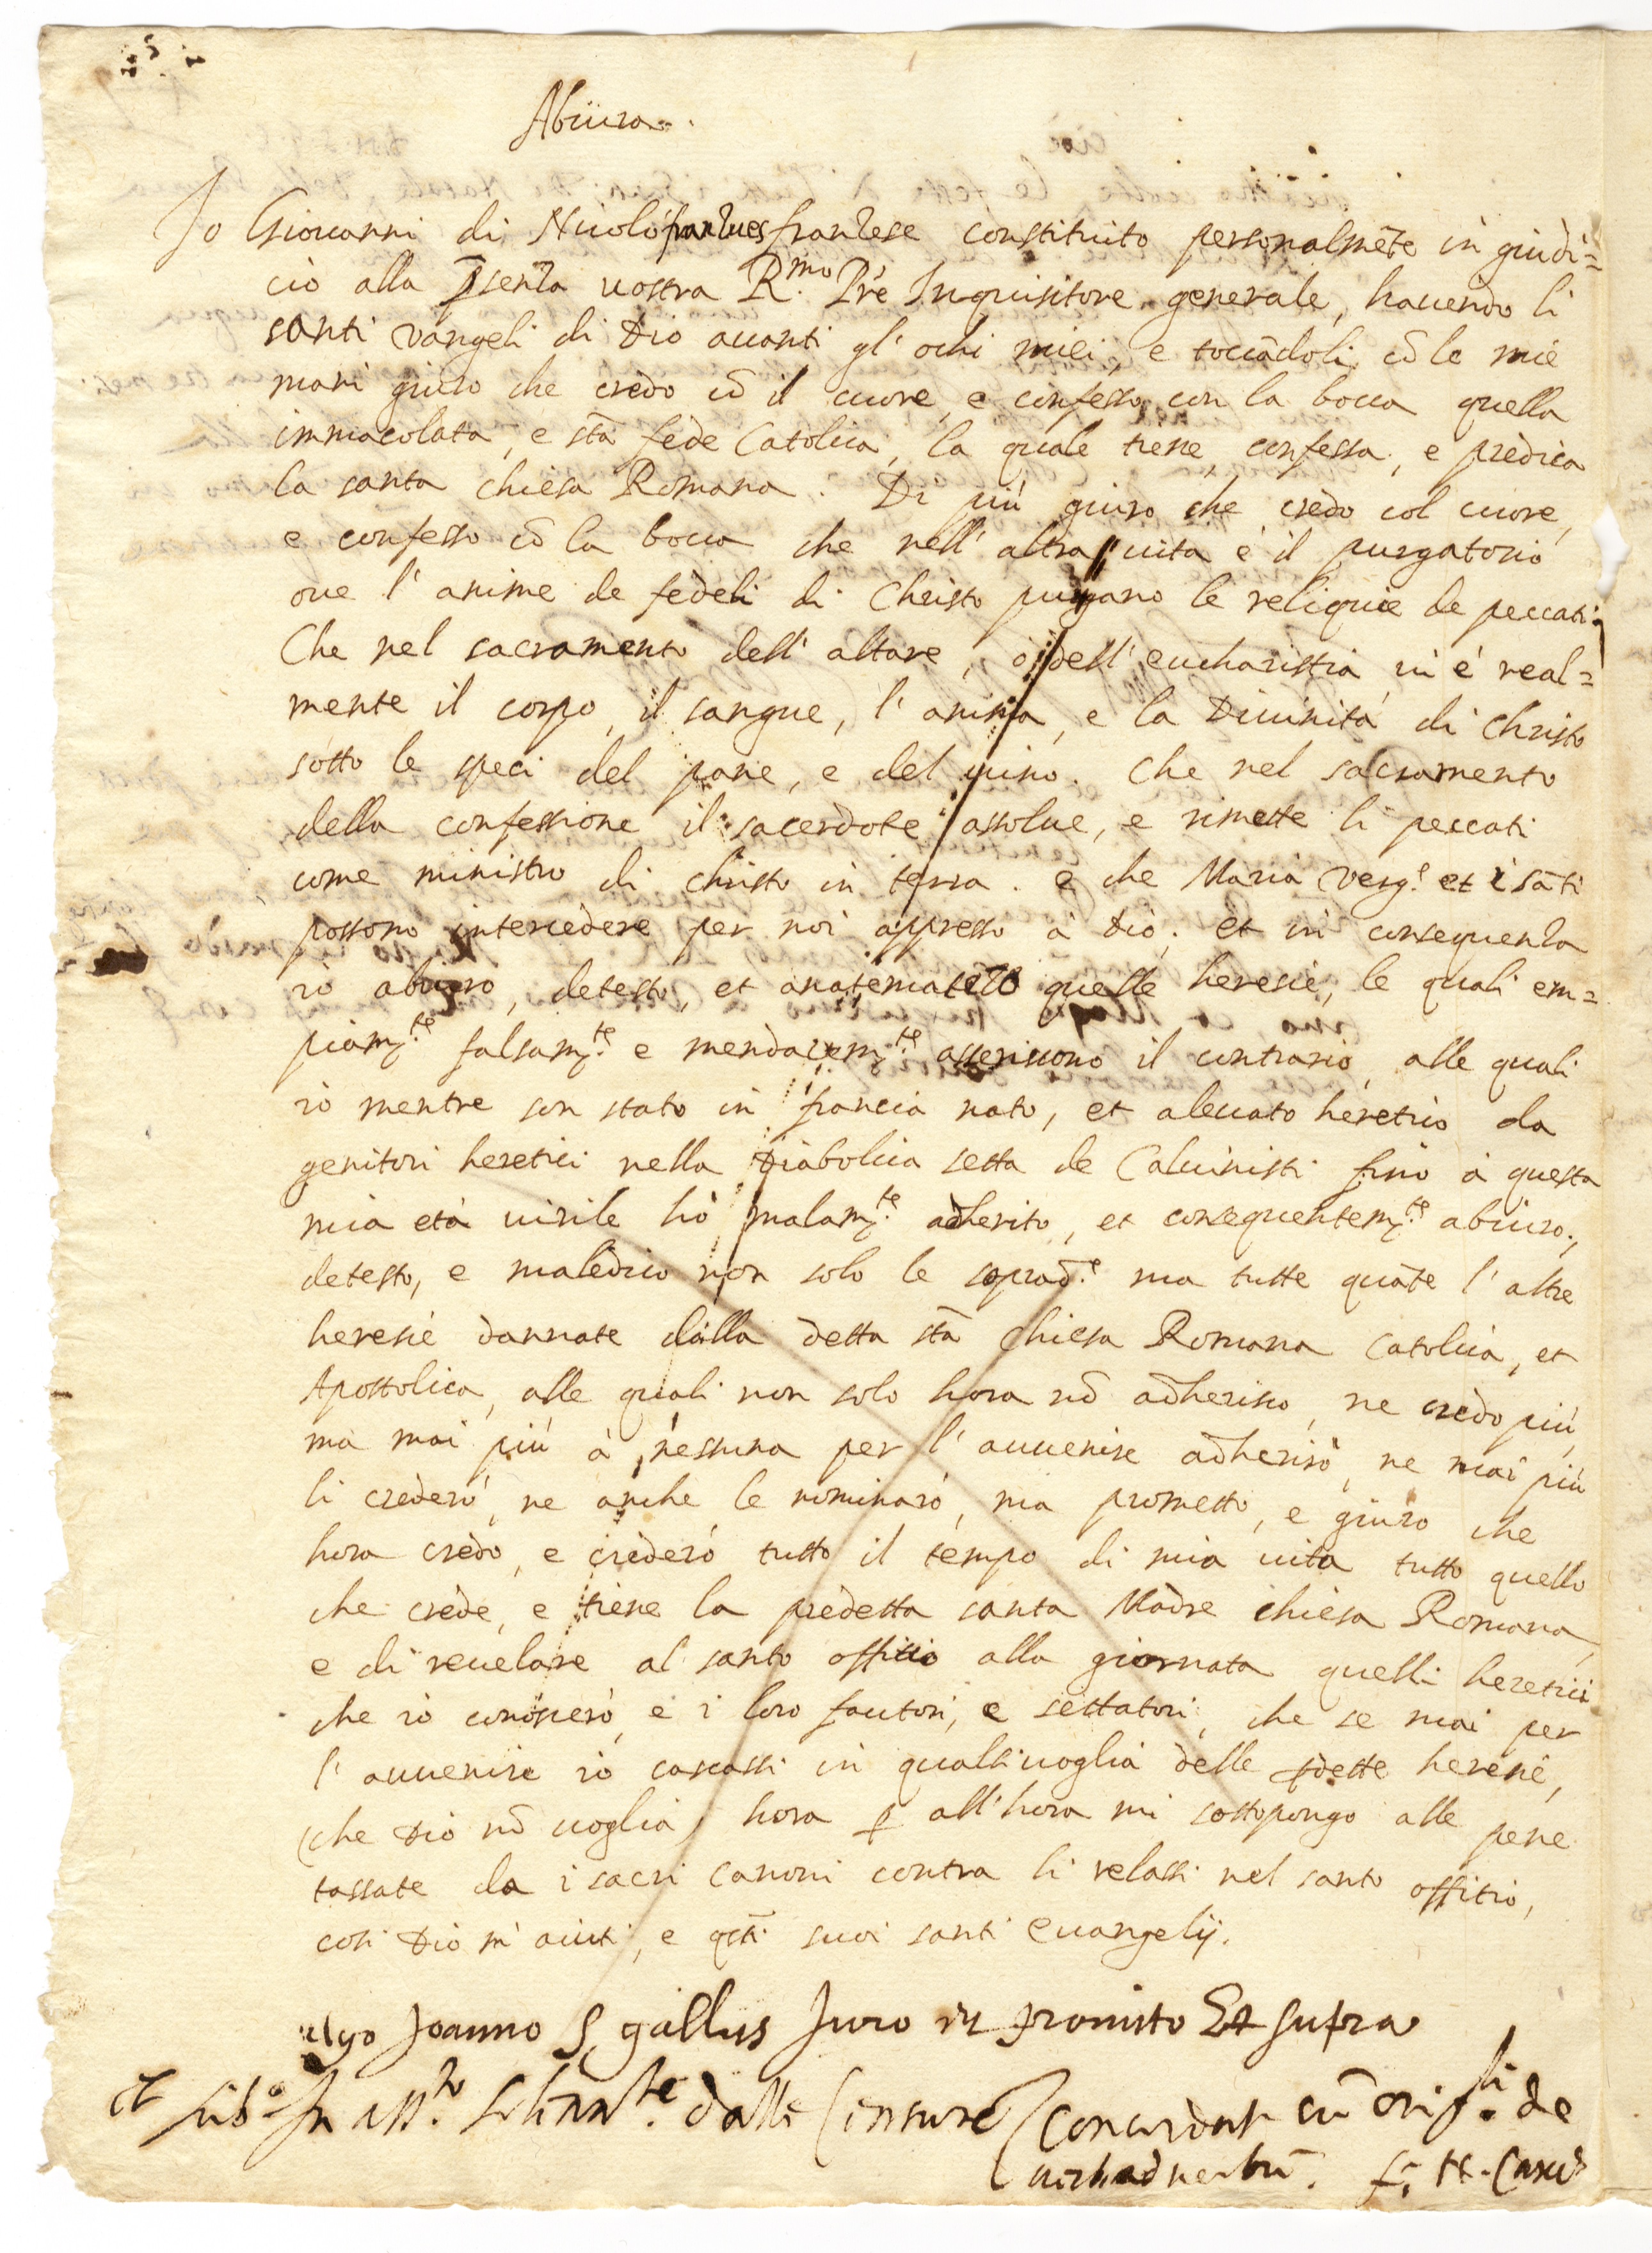 Abiura.
Io Giovanni di Nicoló franzese constituito personalmẽte in giudi=
cio alla p̃senza vostra R.mo Prẽ Inquisitore generale, havendo li
santi vangeli di Dio avanti gl' ochi miei, e toccãdoli cõ le mie
mani giuro che credo cõ il cuore, e confesso con la bocca quella
immacolata, e stã fede Catolica, la quale tiene, confessa, e predica
la santa chiesa Romana. Di piú giuro che credo col cuore,
e confesso cõ la bocca che nell' altra vita é il purgatorio
ove l' anime de fedeli di Christo purgano le reliquie de peccati:
Che nel sacramento dell' altare, ó dell' eucharistia vi é real=
mente il corpo, il sangue, l' anima, e la Divinitá di Christo
sotto le speci del pane, e del vino. Che nel sacramento
della confessione il sacerdote assolve, e rimette li peccati
come ministro di Christo in terra. e che Maria Verg.e et i sãti
possono intercedere per noi appresso á Dio; et in consequenza
io abiuro, detesto, et anatematizo quelle heresie, le quali em=
piam.te falsam.te e mendacem.te asseriscono il contrario, alle quali
io mentre son stato in francia nato, et alevato heretico da
genitori heretici nella Diabolica setta de Calvinisti fino á questa
mia etá virile hó malam.te adherito, et consequentem.te abiuro,
detesto, e maledico non solo le soprad.e ma tutte quãte l' altre
heresie dannate dalla detta stã Chiesa Romana Catolica, et
Apostolica, alle quali non solo hora nõ adherisco, ne credo piú,
ma mai piú á nessuna per l' avvenire adherisó, ne mai piú
li crederó, ne anche le nominaró, ma prometto, e giuro che
hora credo, e crederó tutto il tempo di mia vita tutto quello
che crede, e tiene la predetta santa Madre chiesa Romana,
e di revelare al santo offitio alla giornata quelli heretici
che io conosceró, e i loro fautori, e settatori, che se mai per
l' avvenire io cascassi in qualsivoglia delle p̃dette heresie,
(che Dio nõ voglia) hora p all' hora mi sottopongo alle pene
tassate da i sacri canoni contra li relassi nel santo offitio,
cosi Dio m' aiuti, e q̃sti suoi santi Evangelij.
Ego Joanno gallus Juro et promito Et supra
Concordat cũ orig.li de
verbo ad verbũ.